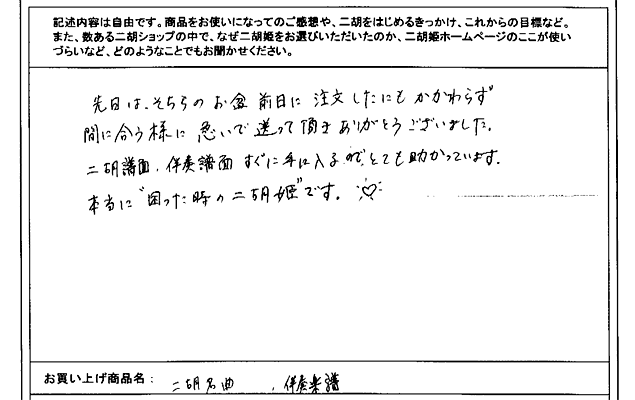 記述内容は自由です。商品をお使いになってのご感想や、二胡をはじめるきっかけ、これからの目標など。
また、数ある二胡ショップの中で、なぜ二胡姫をお選びいただいたのか、二胡姫ホームページのここが使い
づらいなど、どのようなことでもお聞かせください。
先日は、そちらのお盆前日に注文したにもかかわらず
間に合う様に急いで送って頂きありがとうございました。
二胡譜面、伴奏譜面すぐに手に入るので、とても助かっています。
本当に"困った時の二胡姫"です。♡
お買い上げ商品名: 二胡名曲 、伴奏楽譜